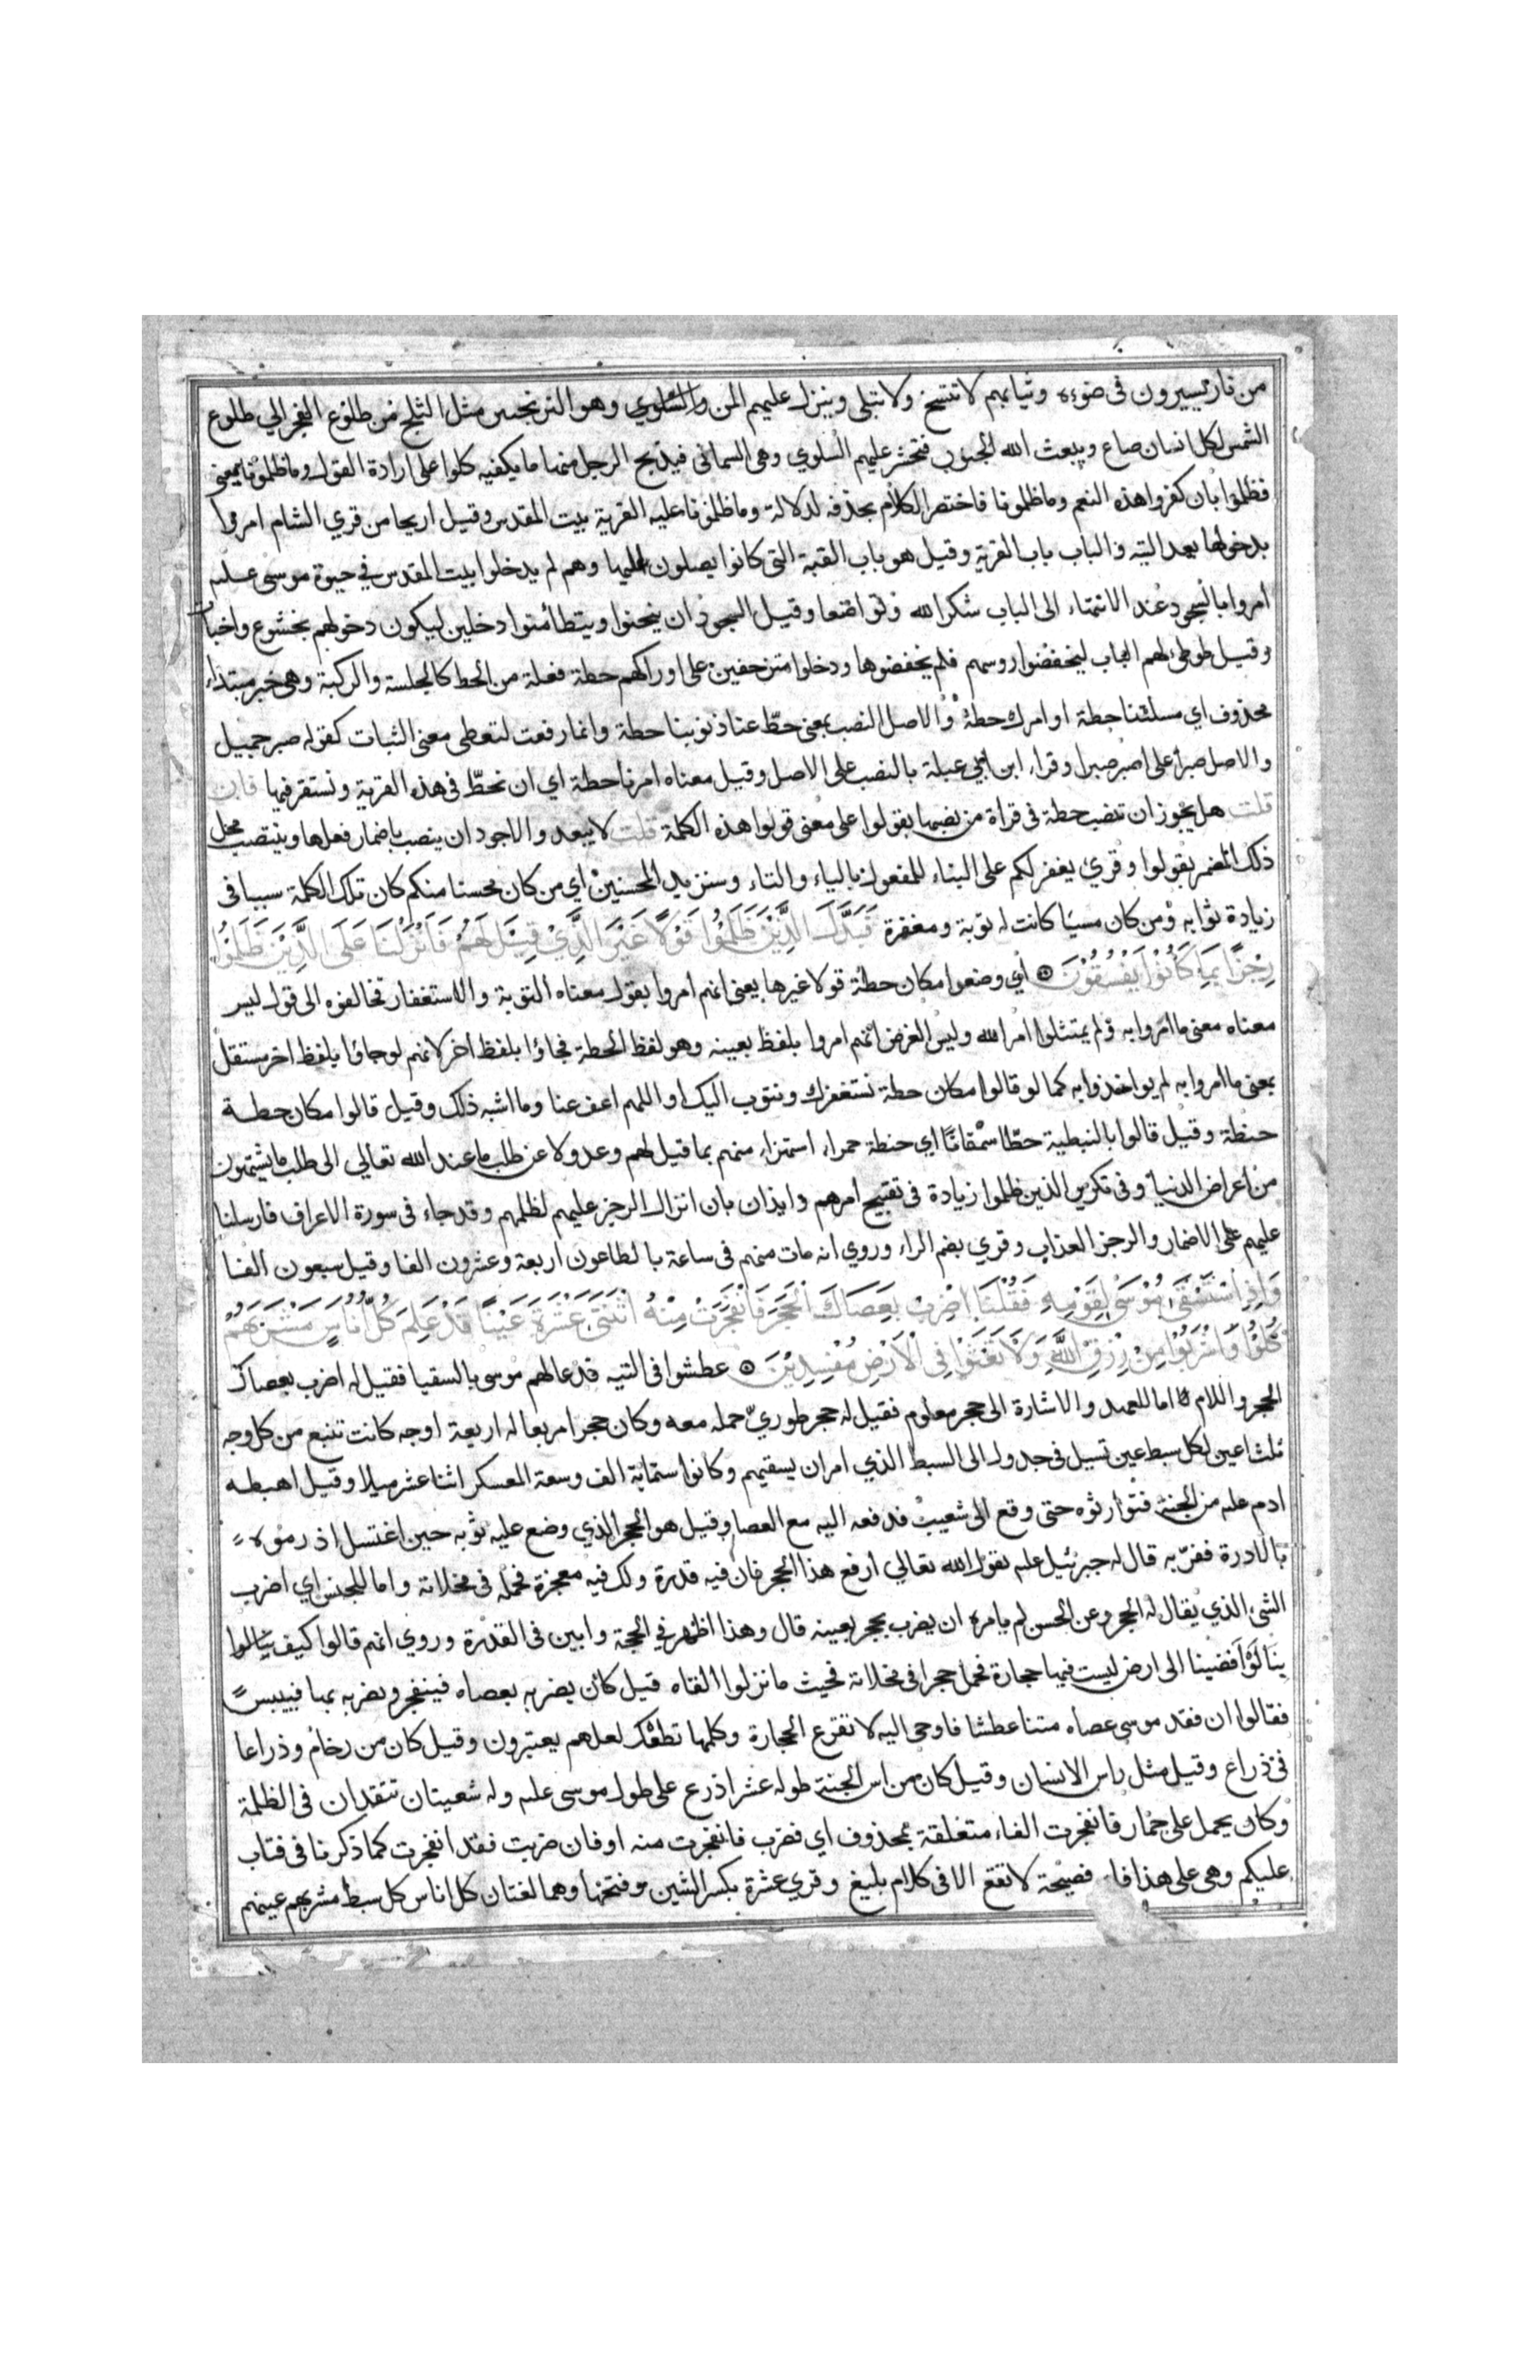 من نار يسيرون فى ضوءه وثيابهم لا تتسخ ولا تبلى وينزل عليهم المن والسلوي وهو الترنجبين مثل الثلج من طلوع الفجر الي طلوع
الشمس لكل انسان صاع ويبعث الله الجنوب فتحشر عليهم السلوي وهى السمانى فيذبح الرجل منها ما يكفيه كلوا على ارادة القول وما ظلمونا يعنى
فظلموا بان كفروا هذه النعم وما ظلمونا فاختصر الكلام بحذفه لدلالة وما ظلمونا عليه القرية بيت المقدس وقيل اريحا من قري الشام امروا
بدخولها بعد التيه والباب باب القرية وقيل هو باب القبة التى كانوا يصلون اليها وهم لم يدخلوا بيت المقدس في حيوة موسى علىه
امروا بالسجود عند الانتهاء الى الباب شكرا لله وتواضعا وقيل السجود ان ينحنوا ويتطأمنوا دخلين ليكون دخولهم بخشوع واخبات
وقيل طوطئ لهم الباب ليخفضوا روسهم فلم يخفضوها ودخلوا متزحفين على اوراكهم حطة فعلة من الحط كالجلسة والركبة وهى خبر مبتداء
محذوف اي مسئلتنا حطة او امرك حطة والاصل النصب بمعنى حطّ عنا ذنوبنا حطة وانما رفعت لتعطى معنى الثبات كقوله صبر جميل
والاصل صبرا على اصبر صبرا وقراء ابن ابي عبلة بالنصب على الاصل وقيل معناه امرنا حطة اي ان نحطّ فى هذه القرية ونستقر فيها فان
قلت هل يجوز ان تنصب حطة فى قراة من نصبها بقولوا على معنى قولوا هذه الكلمة قلت لا يبعد والاجود ان ينصب باضمار فعلها وينتصب محل
ذلك المضمر بقولوا وقري يغفر لكم على البناء للمفعول بالياء والتاء وسنزيد المحسنين اي من كان محسنا منكم كان تلك الكلمة سببا فى
زيادة ثوابه ومن كان مسيا كانت له توبة ومغفرة فَبَدَّلَ الَّذِيْنَ ظَلَمُوْا قَوْلًا غَيْرَ الَّذِيْ قِيْلَ لَهُمْ فَاَنْزَلْنَا عَلَى الَّذِيْنَ ظَلَمُوْا
رِجْزًا بِمَا كَانُوْا يَفْسُقُوْنَ اي وضعوا مكان حطة قولا غيرها يعنى انهم امروا بقول معناه التوبة والاستغفار تخالفوه الى قول ليس
معناه معنى ما امروا به ولم يمتثلوا امر الله وليس الغرض انهم امروا بلفظ بعينه وهو لفظ الحطة فجاؤا بلفظ اخر لانهم لو جاؤا بلفظ اخر مستقل
بمعنى ما امروا به لم يواخذوا به كما لو قالوا مكان حطة نستغفرك ونتوب اليك او اللهم اعف عنا وما اشبه ذلك وقيل قالوا مكان حطة
حنطة وقيل قالوا بالنبطية حطّا سمقاثا اي حنطة حمراء استهزاء منهم بما قيل لهم وعدولا عن طلب ما عند الله تعالي الى طلب ما يشتهون
من اعراض الدنيا وفى تكرير الذين ظلموا زيادة فى تقبيح امرهم وايذان بان انزال الرجز عليهم لظلمهم وقد جاء فى سورة الاعراف فارسلنا
عليهم على الاضمار والرجز العذاب وقري بضم الراء وروي انه مات منهم فى ساعة بالطاعون اربعة وعشرون الفا وقيل سبعون الفا
وَاِذِ اسْتَسْقٰى مُوْسٰى لِقَوْمِهٖ فَقُلْنَا اضْرِبْ بِعَصَاكَ الْحَجَرَ فَانْفَجَرَتْ مِنْهُ اثْنَتَىْ عَشْرَةَ عَيْنًا قَدْ عَلِمَ كُلُّ اُنَاسٍ مَشْرَبَهُمْ
كُلُوْا وَّاشْرَبُوْا مِنْ رِزْقِ اللَّهِ وَلَا تَعْثَوْا فِى الْاَرْضِ مُفْسِدِيْنَ عطشوا فى التيه فدعا لهم موسى بالسقيا فقيل له اضرب بعصاك
الحجر واللام اما للعهد والاشارة الى حجر معلوم فقيل له حجر طوريّ حمله معه وكان حجرا مربعا له اربعة اوجه كانت تنبع من كل وجه
ثلث اعين لكل سبط عين تسيل فى جدول الى السبط الذي امر ان يسقيهم وكانوا ستماية الف وسعة المعسكر اثنا عشر ميلا وقيل اهبطه
ادم علىه من الجنة فتوارثوه حتى وقع الى شعيب فدفعه اليه مع العصا وقيل هو الحجر الذي وضع عليه ثوبه حين اغتسل اذ رموه
بالادرة ففرّ به قال له جبرئيل علىه يقول الله تعالي ارفع هذا الحجر فان فيه قدرة ولك فيه معجزة فحمله فى مخلاته واما للجنس اي اضرب
الشئ الذي يقال له الحجر وعن الحسن لم يامره ان يضرب بحجر بعينه قال وهذا اظهر في الحجة وابين فى القدرة وروي انهم قالوا كيف
بنا لو افضينا الى ارض ليست فيها حجارة فحمل حجرا فى مخلاته فحيث ما نزلوا القاه قيل كان يضربه بعصاه فينفجر ويضربه بها فييبس
فقالوا ان فقد موسى عصاه متنا عطشا فاوحى اليه لا تقرع الحجارة وكلمها تطعك لعلهم يعتبرون وقيل كان من رخام وذراعا
فى ذراع وقيل مثل راس الانسان وقيل كان من اس الجنة طوله عشر اذرع على طول موسى علىه وله شعبتان تتقدان فى الظلمة
وكان يحمل على حمار فانفجرت الفاء متعلقة بمحذوف اي فضرب فانفجرت منه او فان ضربت فقد انفجرت كما ذكرنا فى فتاب
عليكم وهى على هذا فاء فصيحة لا تقع الا فى كلام بليغ وقري عشرة بكسر الشين وفتحها وهما لغتان كل اناس كل سبط مشربهم عينهم